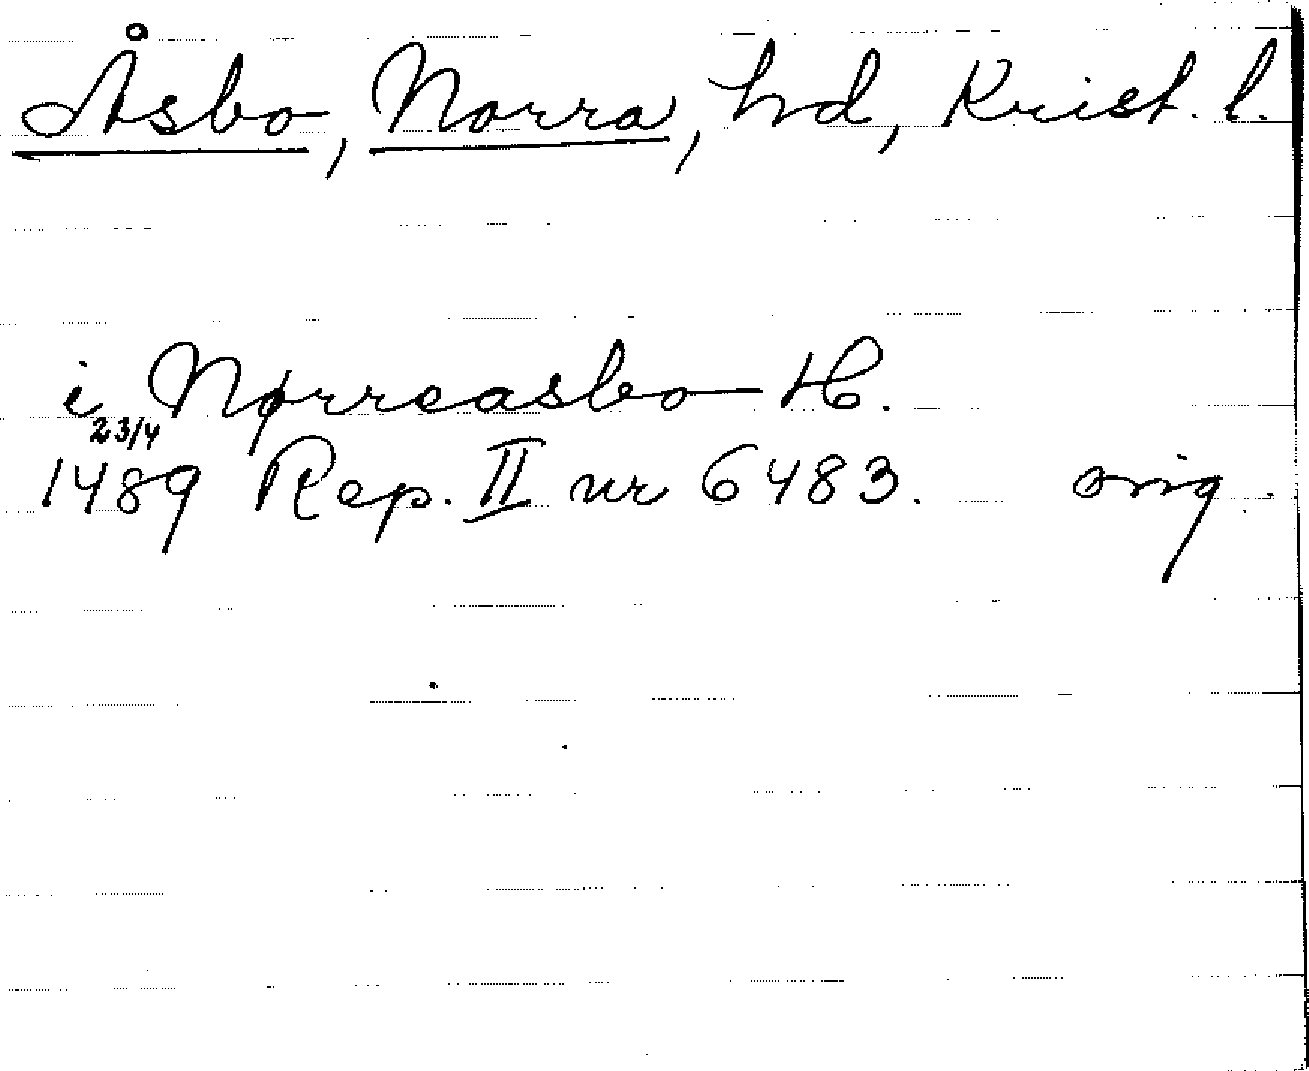 Åsbo, Norra, hd, Krist. l.
i Nørreasbo H.
23/4
1489 Rep. II nr 6483. orig.